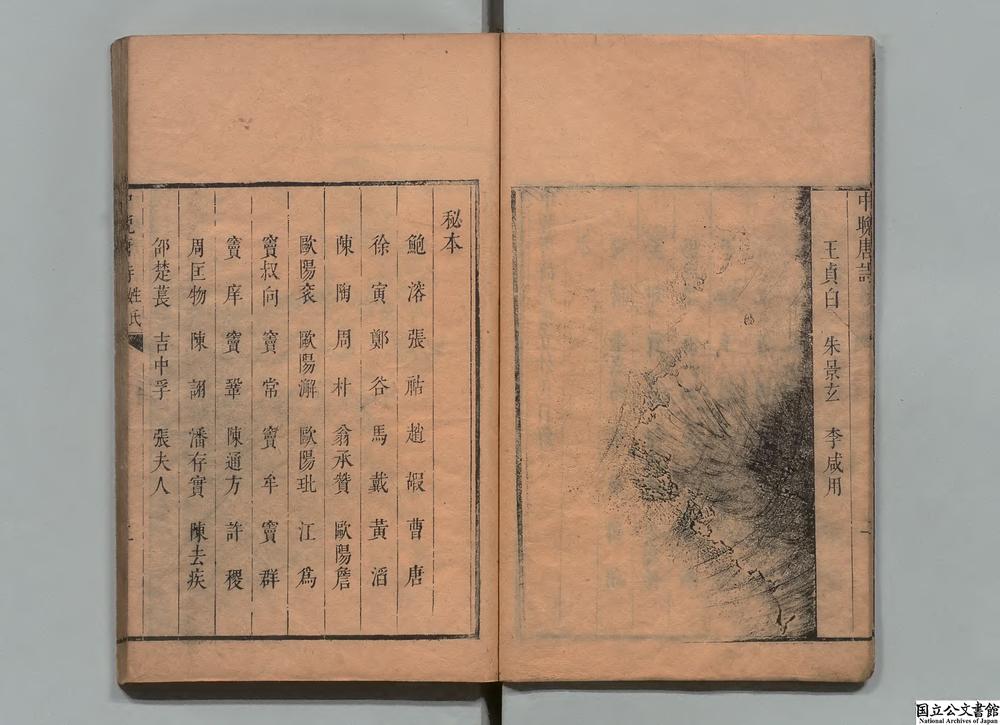 中晚唐詩
王貞白 朱景玄 李咸用
一
秘本
鮑溶 張祜 趙嘏 曹唐
徐寅 鄭谷 馬戴 黃滔
陳陶 周朴 翁承贊 歐陽詹
歐陽袞 歐陽澥 歐陽玭 江爲
竇叔向 竇常 竇牟 竇群
竇庠 竇鞏 陳通方 許稷
周匡物 陳詡 潘存實 陳去疾
邵楚萇 吉中孚 張夫人
中晚唐詩 姓氏
国立公文書館
National Archives of Japan